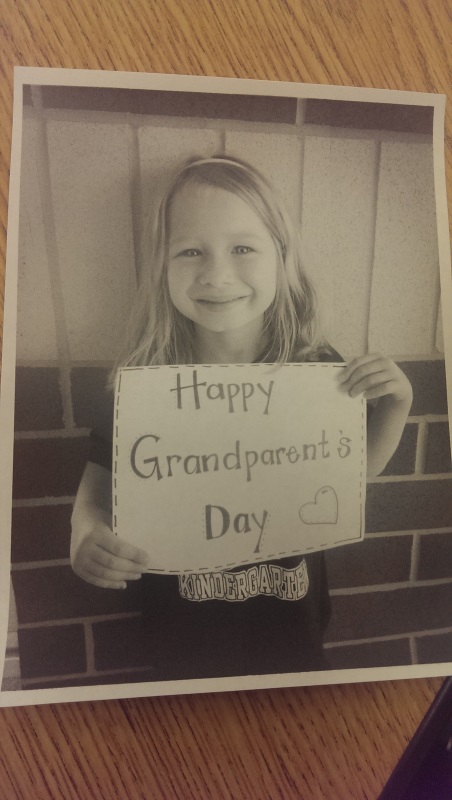 Happy
Grandparent's
Day
KINDERGARTE